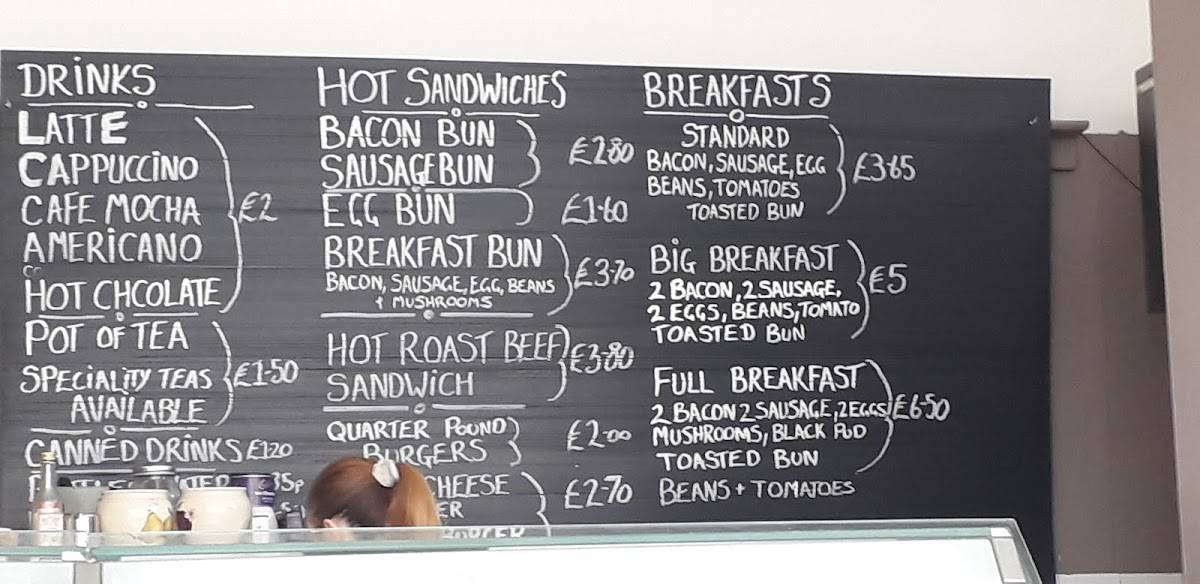 DRINKS
LATTE
CAPPUCCINO
CAFE MOCHA
AMERICANO
HOT CHCOLATE
£2
POT OF TEA
SPECIALITY TEAS
AVAILABLE
£1-50
CANNED DRINKS £1.20
35p
HOT SANDWICHES
BACON BUN
SAUSAGE BUN
£2.80
EGG BUN
£1.60
BREAKFAST BUN
BACON, SAUSAGE, EGG, BEANS
+ MUSHROOMS
£3-70
HOT ROAST BEEF
SANDWICH
£3-80
QUARTER POUND
BURGERS
£2-00
CHEESE
£2-70
BREAKFASTS
STANDARD
BACON, SAUSAGE, EGG
BEANS, TOMATOES
TOASTED BUN
£3.65
BIG BREAKFAST
2 BACON, 2 SAUSAGE,
2 EGGS, BEANS, TOMATO
TOASTED BUN
£5
FULL BREAKFAST
2 BACON 2 SAUSAGE, 2 EGGS
MUSHROOMS, BLACK PUD
TOASTED BUN
BEANS + TOMATOES
£6.50